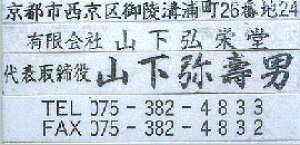 京都市西京区御陵溝浦町26番地24
有限会社 山下弘栄堂
代表取締役 山下弥壽男
TEL 075-382-4833
FAX 075-382-4832